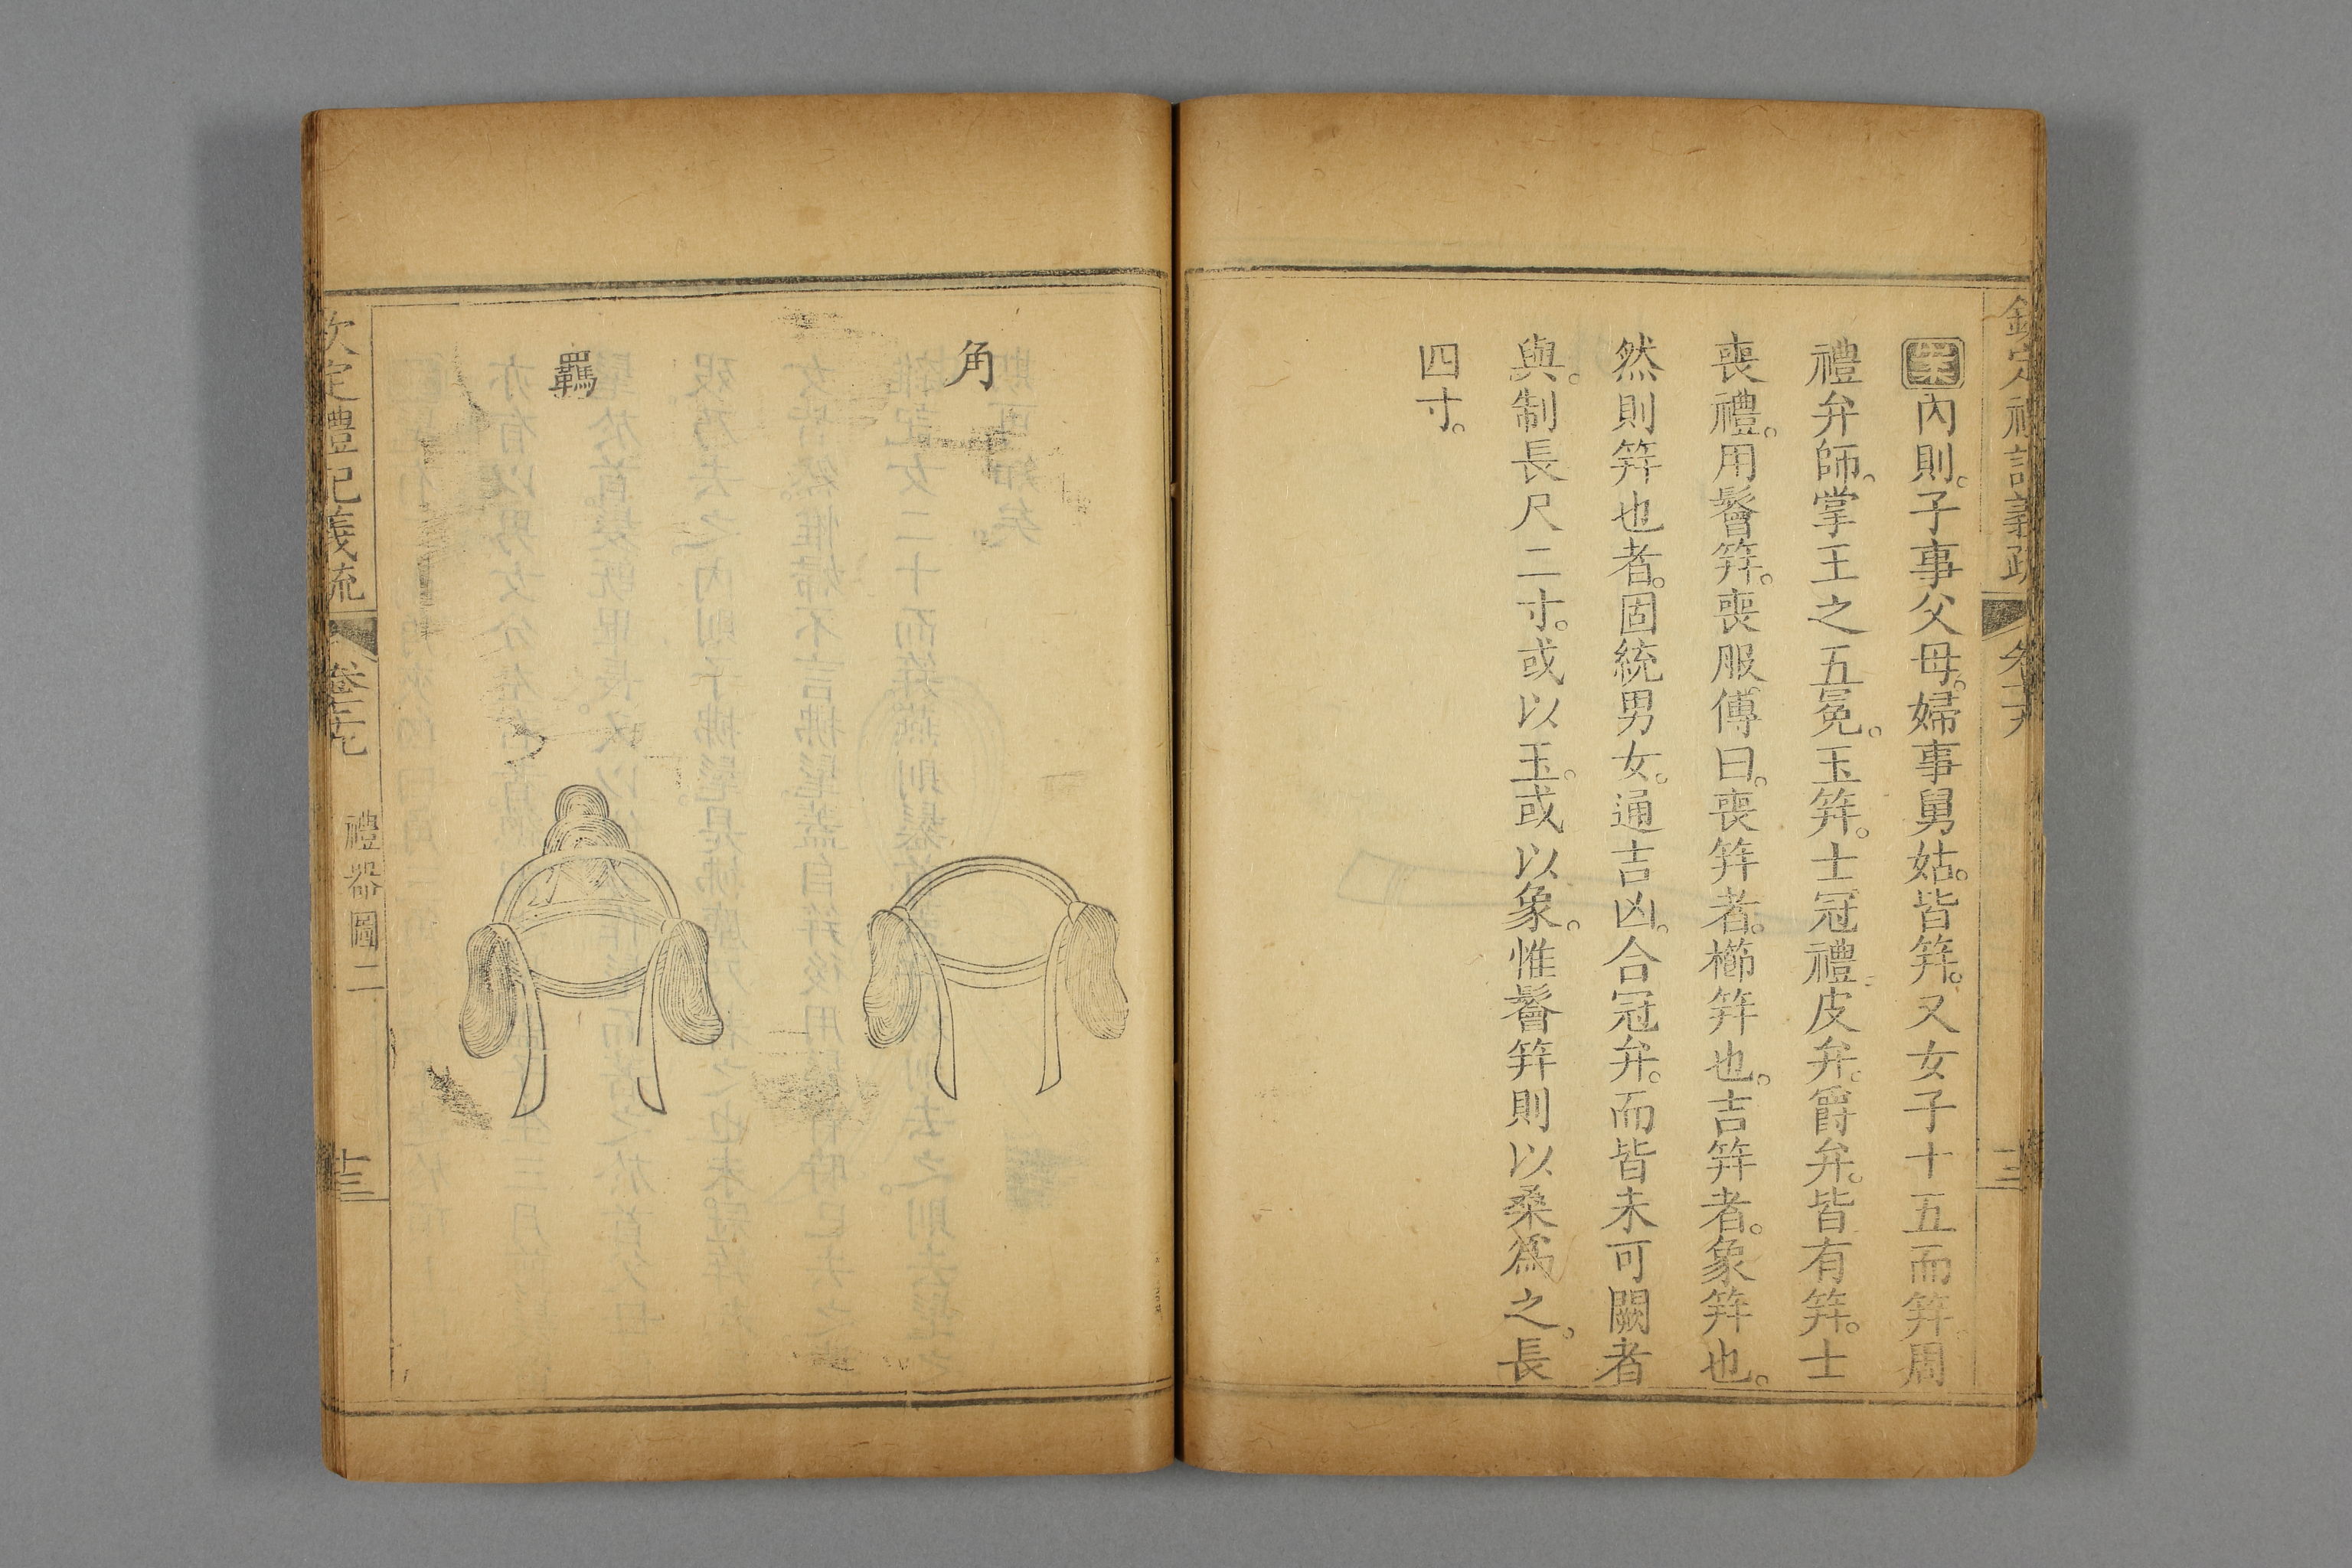 欽定禮記義疏
案內則。子事父母。婦事舅姑。皆笄。又女子十五而笄。周
禮弁師。掌王之五冕。玉笄。士冠禮。皮弁。爵弁。皆有笄。士
喪禮。用鬠笄。喪服傳曰。喪笄者。櫛笄也。吉笄者。象笄也。
然則笄也者。固統男女。通吉凶。合冠弁。而皆未可闕者
與。制長尺二寸。或以玉。或以象。惟鬠笄則以桑爲之。長
四寸。
角
羈
欽定禮記義疏 禮器圖二 十三